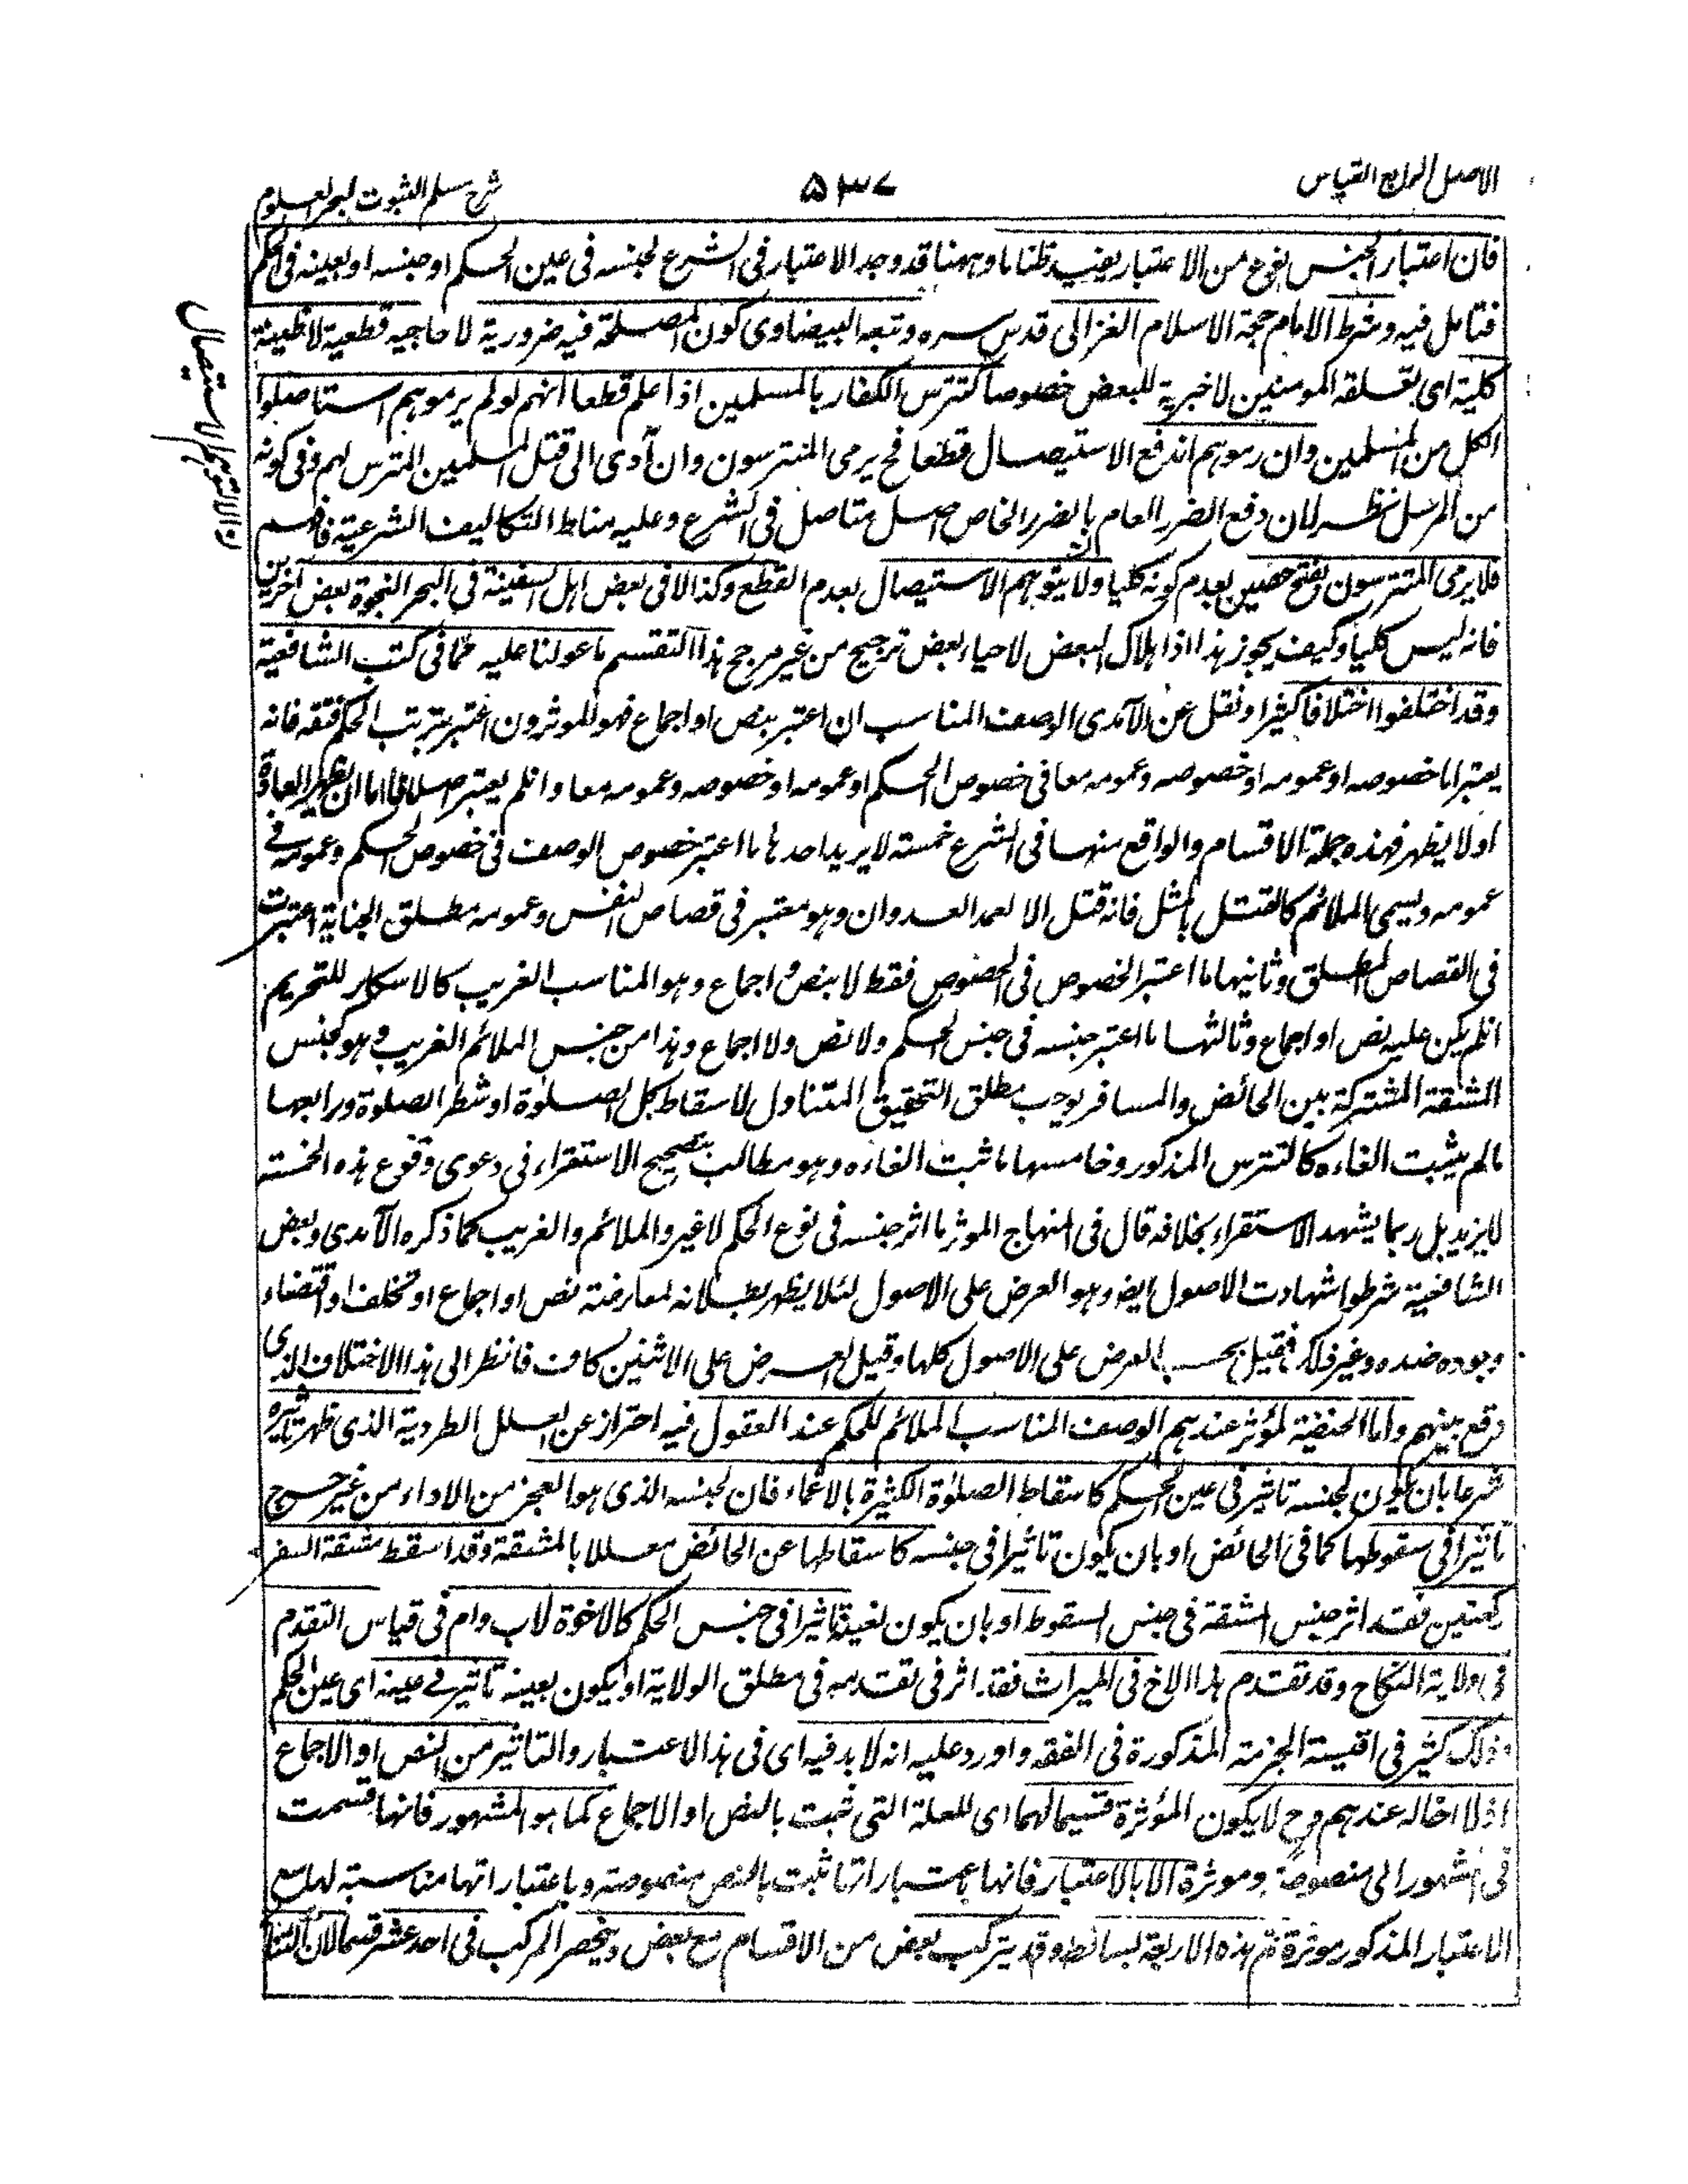 الاصل الرابع القياس
۵۳۷
شرح مسلم الثبوت لبحر العلوم
فان اعتبار الجنس بنوع من الاعتبار يفيد ظنا ما وههنا قد وجد الاعتبار فى الشرع لجنسه فى عين الحكم او جنسه او بعينه فى الحكم
فتامل فيه وشرط الامام حجة الاسلام الغزالى قدس سره وتبعه البيضاوى كون المصلحة فيه ضرورية لا حاجيه قطعية لا ظنية
كلية اى بتعلقه المومنين لا خبرية للبعض خصوصا كتترس الكفار بالمسلمين اذا علم قطعا انهم لو لم يرموهم استاصلوا
الكل من المسلمين وان رموهم اندفع الاستيصال قطعا فح يرمى المتترسون وان آدى الى قتل المسلمين المترس بهم وفى كونه
من المرسل نظر لان دفع الضرر العام بالضرر الخاص اصل متاصل فى الشرع وعليه مناط التكاليف الشرعية فافهم
فلا يرمى المتترسون بفتح حصين لعدم كونه كليا ولا بتوهم الاستيصال لعدم القطع وكذا لا فى بعض اهل السفينة فى البحر النجوة بعض آخرين
فانه ليس كليا وكيف يجوز هذا اذا هلاك البعض لاحياء بعض ترجيح من غير مرجح هذا التقسم ما عولنا عليه مما فى كتب الشافعية
وقد اختلفوا اختلافا كثيرا ونقل عن الآمدى الوصف المناسب ان اعتبر بنص او اجماع فهو الموثر ون اعتبر بترتب الحكم فقه فانه
يعتبر اما خصوصه او عمومه او خصوصه وعمومه معا فى خصوص الحكم او عمومه او خصوصه وعمومه معا وانلم يعتبر اصلا فاما ان يظهر الغاؤه
او لا يظهر فهذه جملة الاقسام والواقع منها فى الشرع خمسته لا يزيد احدها ما اعتبر خصوص الوصف فى خصوص الحكم وعمومه فے
عمومه ويسمى الملائم كالقتل بالمثل فانه قتل الا لعمد العدوان وهو معتبر فى قصاص النفس وعمومه مطلق الجناية اعتبرت
فى القصاص المطلق وثانيها ما اعتبر الخصوص فى الخصوص فقط لا بنص و اجماع وهو المناسب الغريب كالاسكار للتحريم
انلم يكن عليه نص او اجماع وثالثها ما اعتبر جنسه فى جنس الحكم ولا نص ولا اجماع وهذا من جنس الملائم الغريب وهو كجنس
المشقة المشتركة بين الحائض والمسافر يوجب مطلق التخفيف المتناول لاسقاط كل الصلوة او شطر الصلوة ورابعها
مالم يثبت الغاءه كالتترس المذكور وخامسها ما ثبت الغاءه وهو مطالب بتصحيح الاستقراء فى دعوى وقوع هذه الخمسته
لا يزيد بل ربما يشهد الاستقراء بخلافه قال فى المنهاج الموثر ما اثر جنسه فى نوع الحكم لا غير والملائم والغريب كما ذكره الآمدى وبعض
الشافعية شرطوا شهادت الاصول ايضا وهو العرض على الاصول لئلا يظهر بطلانه لمعارضته نص او اجماع او تخلف او اقتضاء
وجوده ضده وغير ذلك فقيل يجب العرض على الاصول كلها وقيل العرض على الاثنين كاف فانظر الى هذا الاختلاف الذى
وقع بينهم واما الحنفية لموثر عندهم الوصف المناسب الملائم للحكم عند العقول فيه احتراز عن العلل الطردية الذى ظهر تاثيره
شرعا بان يكون لجنسه تاثير فى عين الحكم كاسقاط الصلوة الكثيرة بالاغماء فان لجنسه الذى هو العجز من الاداء من غير حرج
تاثيرا فى سقوطها كما فى الحائض او بان يكون تاثيرا فى جنسه كاسقاطها عن الحائض معللا بالمشقة وقد اسقط مشقة السفر
ركعتين فقد اثر جنس المشقة فى جنس السقوط او بان يكون لعينه تاثيرا فى جنس الحكم كالاخوة لاب وام فى قياس التقدم
فى ولاية النكاح وقد تقدم هذا الاخ فى الميراث فقد اثر فى تقدمه فى مطلق الولاية او يكون بعينه تاثير فے عينه اى عين الحكم
وذلك كثير فى اقيسة الجزمته المذكورة فى الفقه واورد عليه انه لا بد فيه اى فى هذا الاعتبار والتاثير من النص او الاجماع
اذ لا اخاله عندهم وح لا يكون المؤثرة قسيما لهما اى للعلة التى ثبت بالنص او الاجماع كما هو المشهور فانها قسمت
فى المشهور الى منصوصة وموثرة الا بالاعتبار فانها باعتبار انها ثبت بالنص منصوصته وباعتبار انها مناسبة لها مع
الاعتبار المذكور موثرة ثم هذه الاربعة بسائط وقد يتركب بعض من الاقسام مع بعض وينحصر المركب فى احد عشر قسما لان الثنا